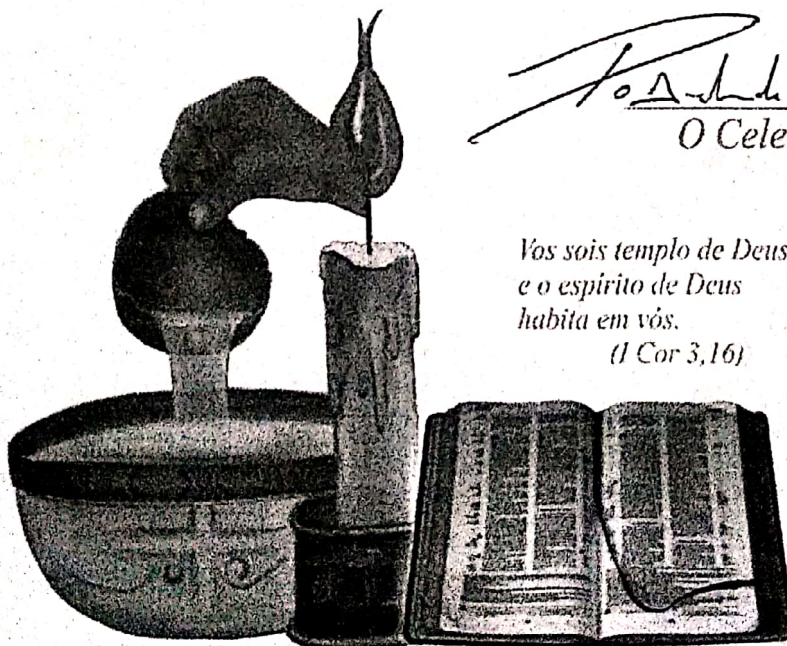 O Cele
Vos sois templo de Deus
e o espírito de Deus
habita em vós.
(I Cor 3,16)